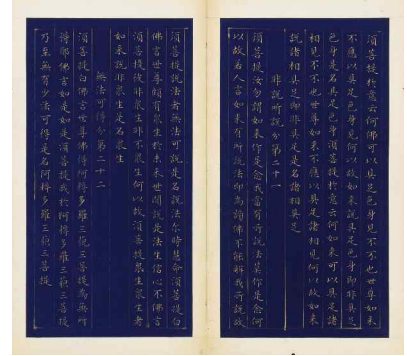 須菩提於意云何佛可以具足色身見不不也世尊如來
不應以具足色身見何以故如來說具足色身即非具足
色身是名具足色身須菩提於意云何如來可以具足諸
相見不不也世尊如來不應以具足諸相見何以故如來
說諸相具足即非具足是名諸相具足
非說所說分第二十一
須菩提汝勿謂如來作是念我當有所說法莫作是念何
以故若人言如來有所說法即為謗佛不能解我所說故
須菩提說法者無法可說是名說法尔時慧命須菩提白
佛言世尊頗有眾生於未來世聞說是法生信心不佛言
須菩提彼非眾生非不眾生何以故須菩提眾生眾生者
如來說非眾生是名眾生
無法可得分第二十二
須菩提白佛言世尊佛得阿耨多羅三藐三菩提為無所
得耶佛言如是如是須菩提我於阿耨多羅三藐三菩提
乃至無有少法可得是名阿耨多羅三藐三菩提